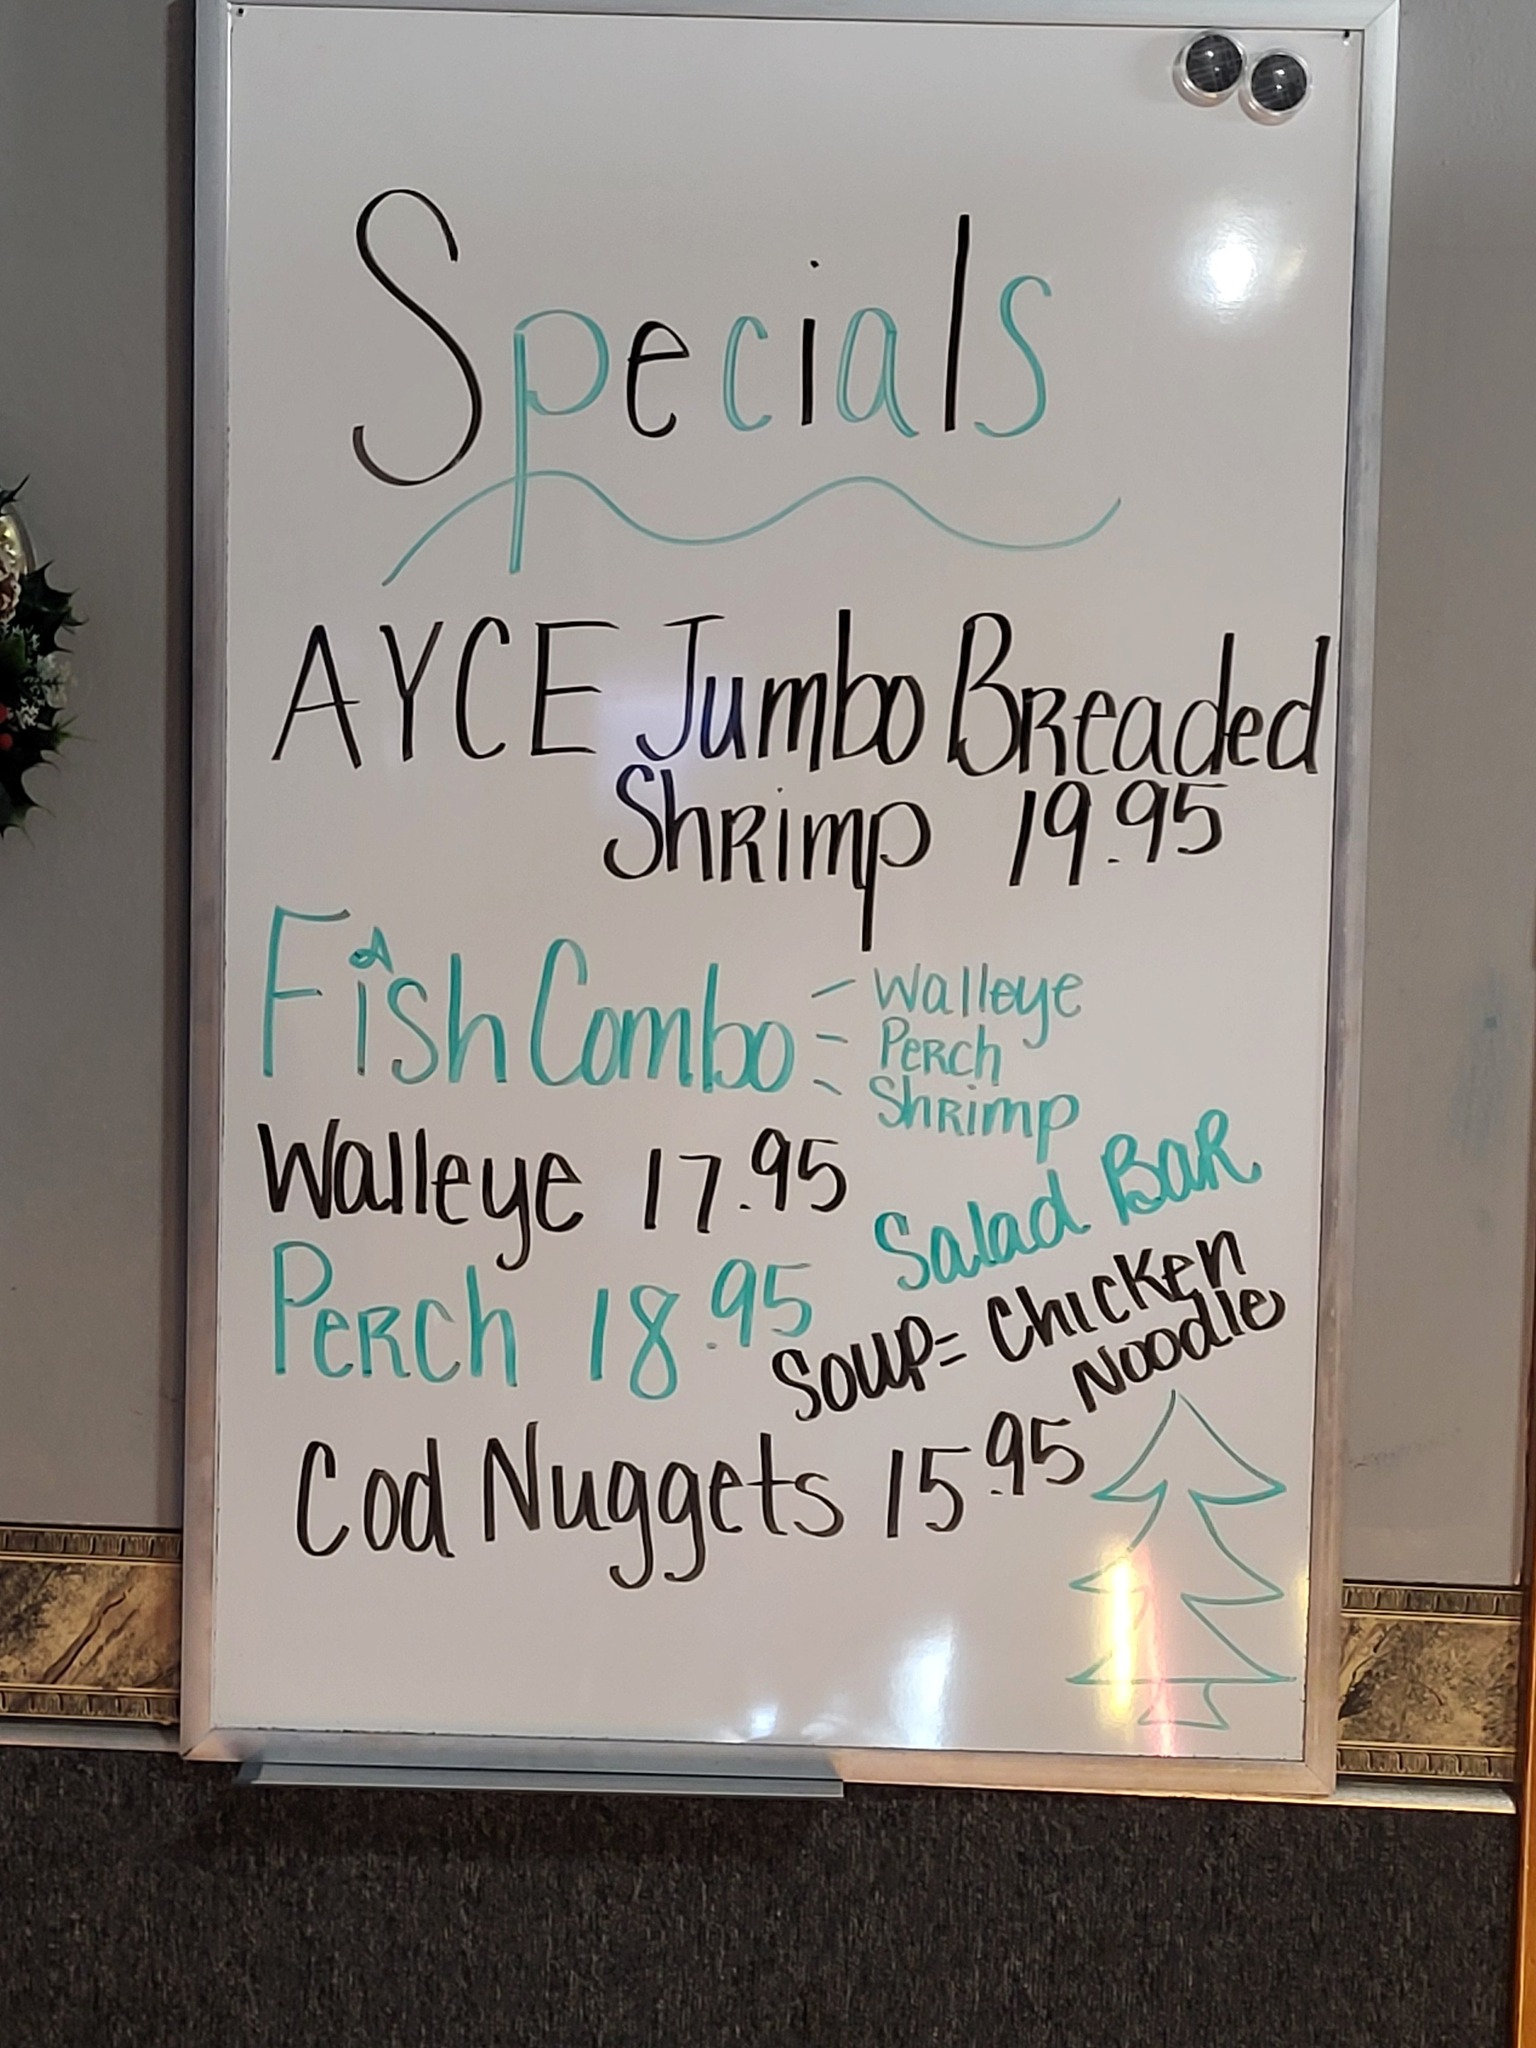 Specials
AYCE Jumbo Breaded
Shrimp 19.95
Fish Combo - Walleye
- Perch
- Shrimp
Walleye 17.95
Perch 18.95
Salad Bar
Soup = Chicken
Noodle
Cod Nuggets 15.95